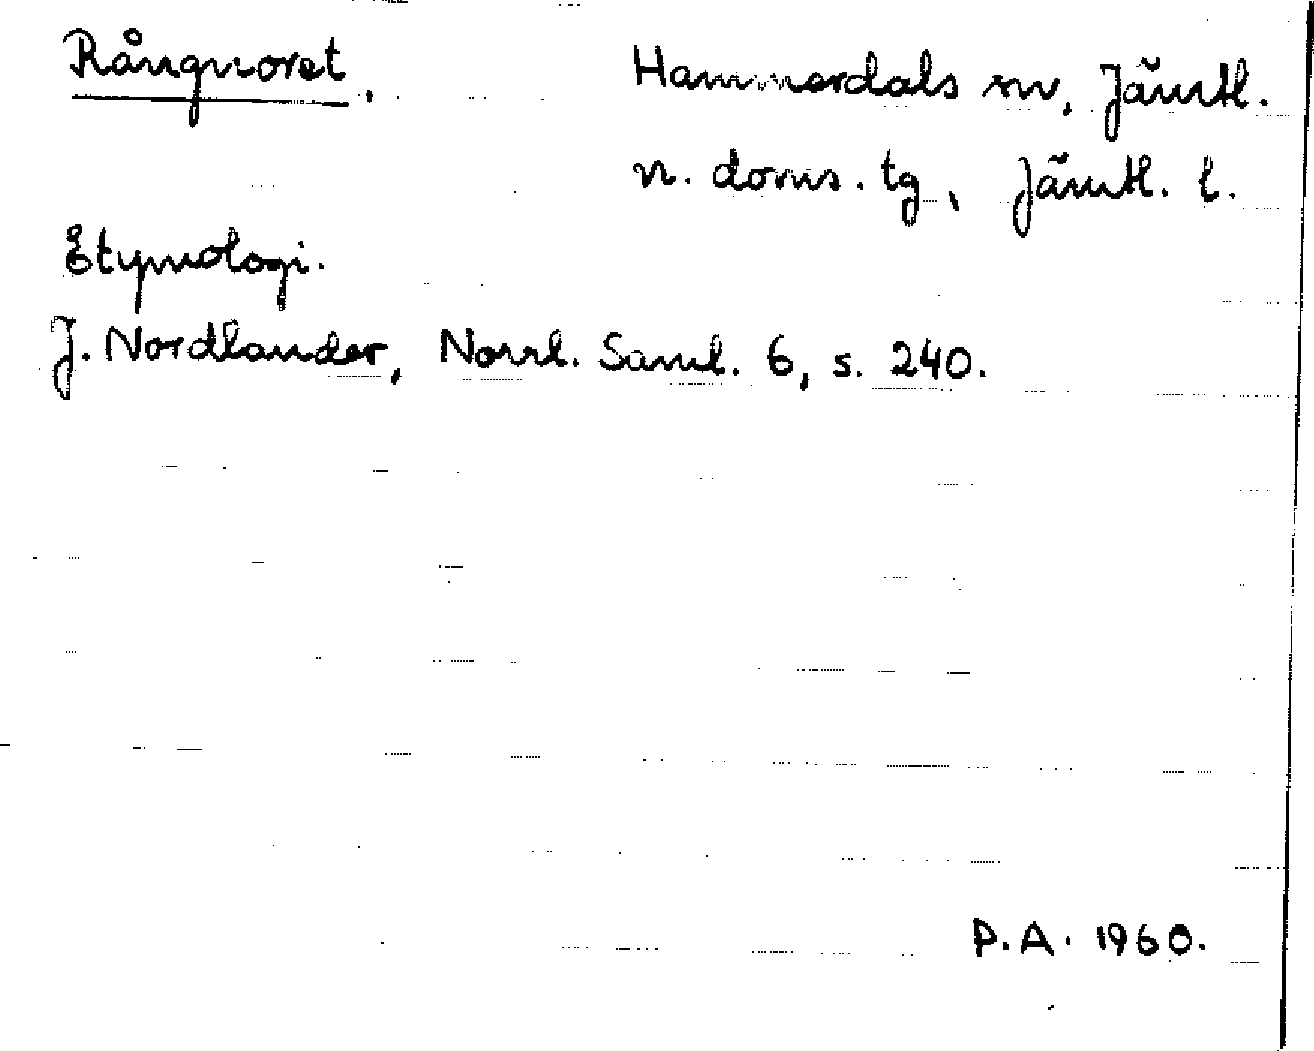 Rångnoret. Hammerdals sn, Jämtl.
n. doms. tg, Jämtl. l.
Etymologi.
J. Nordlander, Norrl. Saml. 6, s. 240.
P.A. 1960.